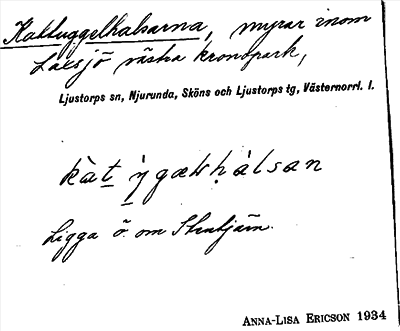 Kattuggelhalsarna, myrar inom
Laxsjö västra kronopark,
Ljustorps sn, Njurunda, Sköns och Ljustorps tg, Västernorrl. l.
Ligga ö. om Stentjärn.
ANNA-LISA ERICSON 1934